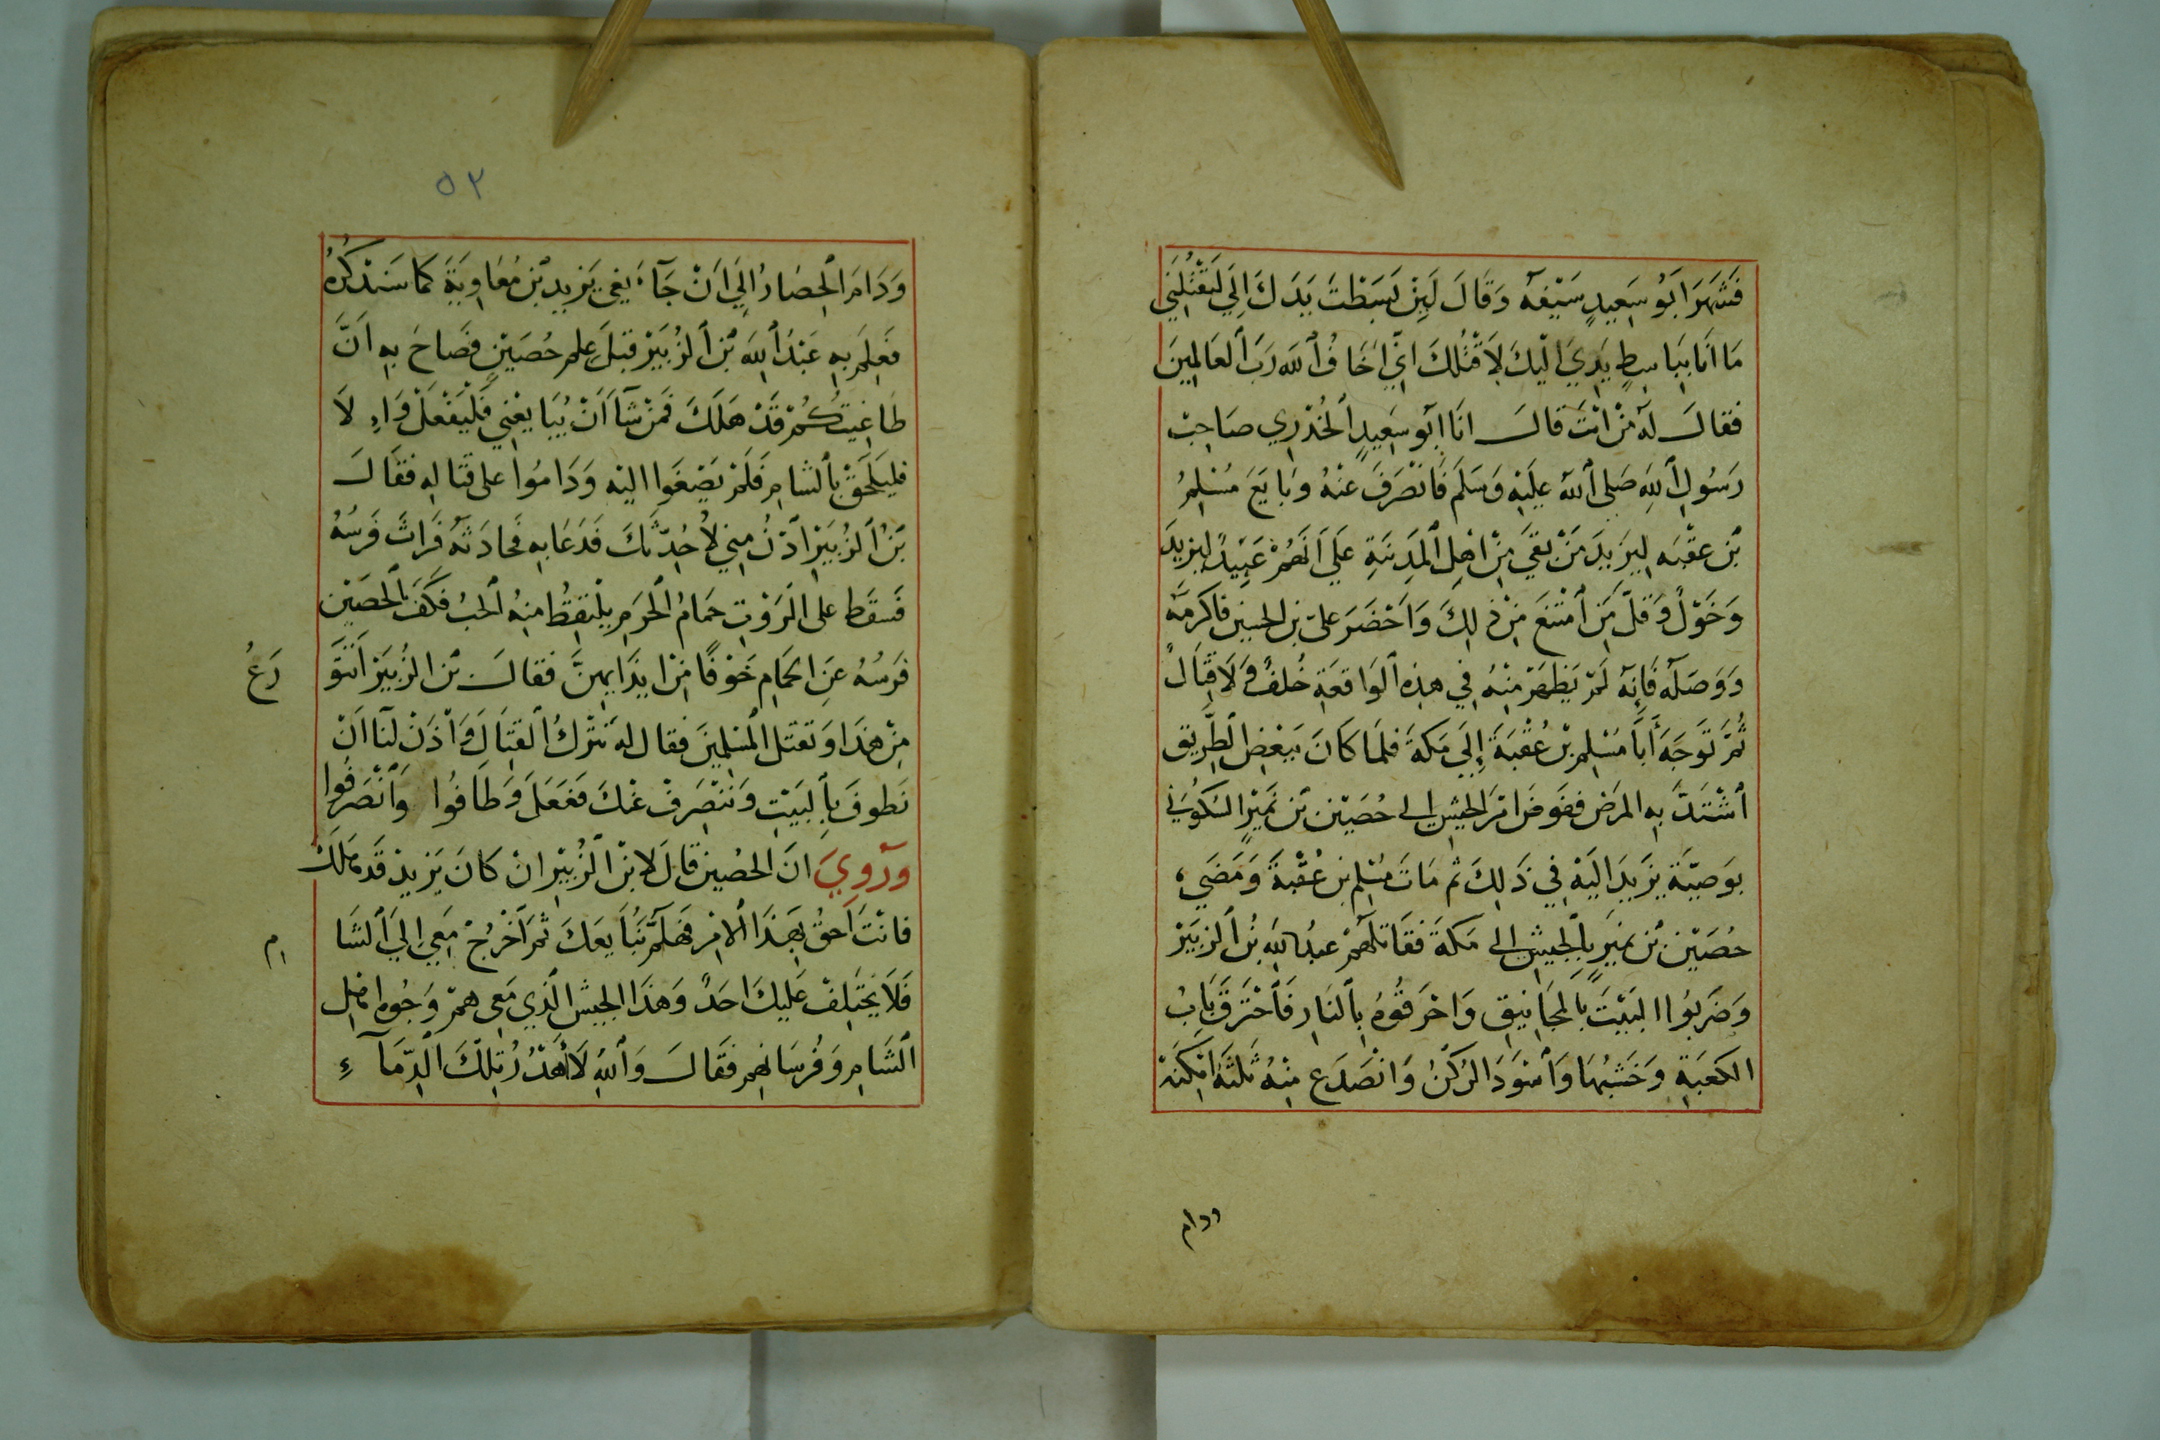 فَشَهَرَ اَبُو سَعِيدٍ سَيْفَهُ وَقَالَ لَئِنْ بَسَطْتَ يَدَكَ اِلَيَّ لِتَقْتُلَنِي
مَا اَنَا بِبَاسِطٍ يَدِيَ اِلَيْكَ لِاَقْتُلَكَ اِنِّي اَخَافُ ٱللَّهَ رَبَّ ٱلعَالَمِينَ
فقالَ له مَنْ اَنْتَ قالَ اَنَا اَبُو سَعِيدٍ ٱلخُدْرِي صَاحِبُ
رَسُولِ ٱللَّهِ صَلى ٱللَّهُ عَلَيْهِ وَسَلَّمَ فَانْصَرَفَ عَنْهُ وَبَايَعَ مُسْلِمُ
بْنِ عقْبَه لِيَزِيدَ مَنْ بَقيَ مِنْ اَهْلِ ٱلمَدِينَةِ عَلَى اَنَّهُمْ عَبِيدٌ لِيَزِيدَ
وَخَوَلٌ وَقَلَّ مَنِ ٱمْتَنَعَ مِنْ ذٰلِكَ وَاَحْضَرَ عَلىّ بن الحسين فاكرمَهُ
وَوَصَلَهُ فَاِنَّهُ لَمْ يَظْهَرْ مِنْهُ فِي هذِهِ ٱلوَاقعَةِ خُلفٌ وَلَا قِتَالٌ
ثُمَّ تَوَجَهَ أَبَا مُسْلِمِ بْن عُقْبَةَ إِلَى مَكةَ فلمَا كَانَ بِبَعْضِ ٱلطَّرِيق
ٱشْتَدَّ بِهِ المَرَض ففَوضَ اَمْرَ الجَيْشِ الى حُصَيْن بْن نُمَيْرٍ السَكُونِي
بوَصيّة يزيدَ الَيْهِ فِي ذَلِكَ ثم مَاتَ مُسْلِم بن عُقْبَةَ وَمَضَى
حُصَيْن بْن نمَيرٍ بِٱلجَيْشِ الى مَكةَ فقَاتلَهُمْ عبدُ اللهِ بْنُ ٱلزبَيْر
وَضَرَبُوا البَيْتَ بِالمجَانِيقِ وَاحْرَقُوهُ بِٱلنَارِ فَٱحْتَرَقَ بَابُ
الكعْبَةِ وَخَشَبُهَا وَٱسْوَدَ الرُكْنُ وَانْصَدَع مِنْهُ ثَلثَة اَمْكِنَة
ودام
٥٢
وَدَامَ ٱلحِصَارُ اِلَى اَنْ جَآءَ نعْيُ يَزيد بْن مُعَاوِيَةَ كمَا سَنذْكُرُهُ
فعَلِمَ بِهِ عَبْدُ ٱللهِ بْن ٱلزُبَيْر قبْلَ عِلم حُصَيْنٍ فصَاحَ بِهِ اَنَّ
طَاغِيَتَكُمْ قَدْ هَلَكَ فَمَنْ شَآءَ اَنْ يُبَايعَني فَليَفْعَلْ وَاِلَا
فليَلحَقْ بِٱلشامِ فَلَمْ يَصْغَوا اليْهِ وَدَامُوا على قتَالِهِ فقَالَ
بْنُ ٱلزُبَيْر اُدْنُ مِني لِأُحَدِّثكَ فدَعَا بِهِ فحَادَثهُ فَرَاثَ فَرَسُهُ
فسَقط على ٱلرَوْثِ حَمَامُ ٱلحَرَمِ يلْتقِطُ مِنْهُ ٱلحبُ فكَفَ ٱلحصَيْن
فرَسُهُ عَنِ الحَمَامِ خَوْفًا مِنْ اِيذَايهِنَّ فقالَ بْن الزُبَيْر اَتَتَوَ
رَعُ
مِنْ هذَا وَتقتل ٱلمُسْلِمينَ فقال له نَتْرُكُ ٱلقتَالَ وَأذَنْ لَنَا اَنْ
نَطوفَ بِٱلبَيْتِ وَنَنْصَرِفَ عَنْكَ فَفَعَلَ وَطَافُوا وَٱنْصَرَفُوا
وَرُوِيَ انَ الحُصَين قالَ لابْن ٱلزُبَيْر اِنْ كانَ يَزيدْ قدْ هَلَكَ
فاَنْتَ اَحَقُ بِهَذَا ٱلامْرِ فَهَلمَّ نُبَايعَكَ ثمَ ٱخْرُجْ مَعِي اِلَى ٱلشَا
ام
فَلَا يَختَلِفُ عَليكَ اَحَدٌ وَهَذَا الجَيْش الَّذي مَعى همْ وَجُوه اهْل
ٱلشَامِ وَفُرسَانهِم فقَالَ وَٱللَّهِ لَا أهْدُرُ تِلْكَ ٱلدِّمَآءِ